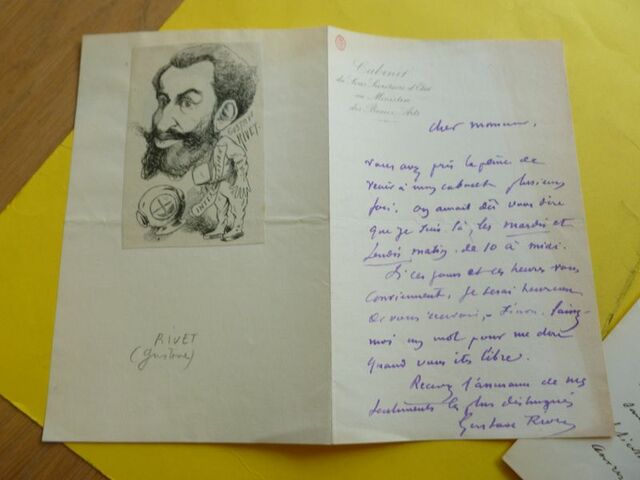 GUSTAVE
RIVET.
RIVET
(Gustave)
Cabinet
du Sous Secrétaire d'Etat
au Ministère
des Beaux-Arts
cher monsieur,
vous avez pris la peine de
venir à mon cabinet plusieurs
fois. on aurait dû vous dire
que je suis là, les mardis et
Jeudis matin. de 10 à midi.
Si ces jours et ces heures vous
conviennent, je serai heureux
de vous recevoir. Sinon, faites
moi un mot pour me dire
quand vous êtes libre.
Recevez l'assurance de mes
sentiments les plus distingués
Gustave Rivet